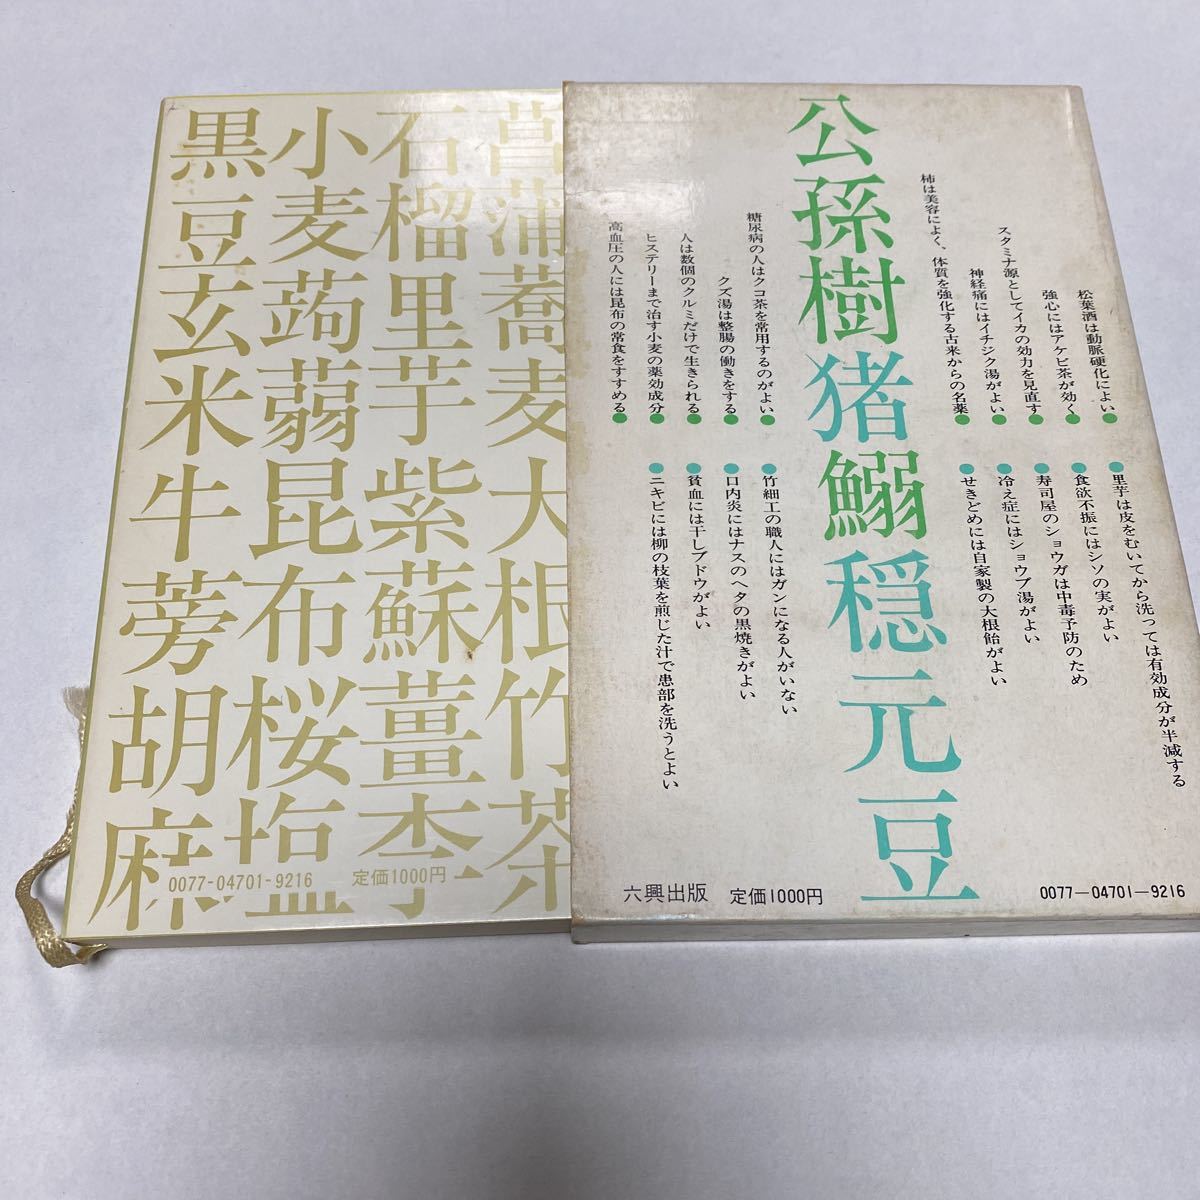 松葉酒は動脈硬化によい●
強心にはアケビ茶が効く●
スタミナ源としてイカの効力を見直す●
神経痛にはイチジク湯がよい●
柿は美容によく、体質を強化する古来からの名薬●
●里芋は皮をむいてから洗っては有効成分が半減する
●食欲不振にはシソの実がよい
●寿司屋のショウガは中毒予防のため
●冷え症にはショウブ湯がよい
●せきどめには自家製の大根飴がよい
公孫樹猪鰯穏元豆
糖尿病の人はクコ茶を常用するのがよい●
クズ湯は整腸の働きをする●
人は数個のクルミだけで生きられる●
ヒステリーまで治す小麦の薬効成分●
高血圧の人には昆布の常食をすすめる●
●竹細工の職人にはガンになる人がいない
●口内炎にはナスのヘタの黒焼きがよい
●貧血には干しブドウがよい
●ニキビには柳の枝葉を煎じた汁で患部を洗うとよい
六興出版 定価1000円
0077-04701-9216
菖蒲蕎麦大根竹茶
石榴里芋紫蘇薑李
小麦蒟蒻昆布桜塩
黒豆玄米牛蒡胡麻
0077-04701-9216 定価1000円